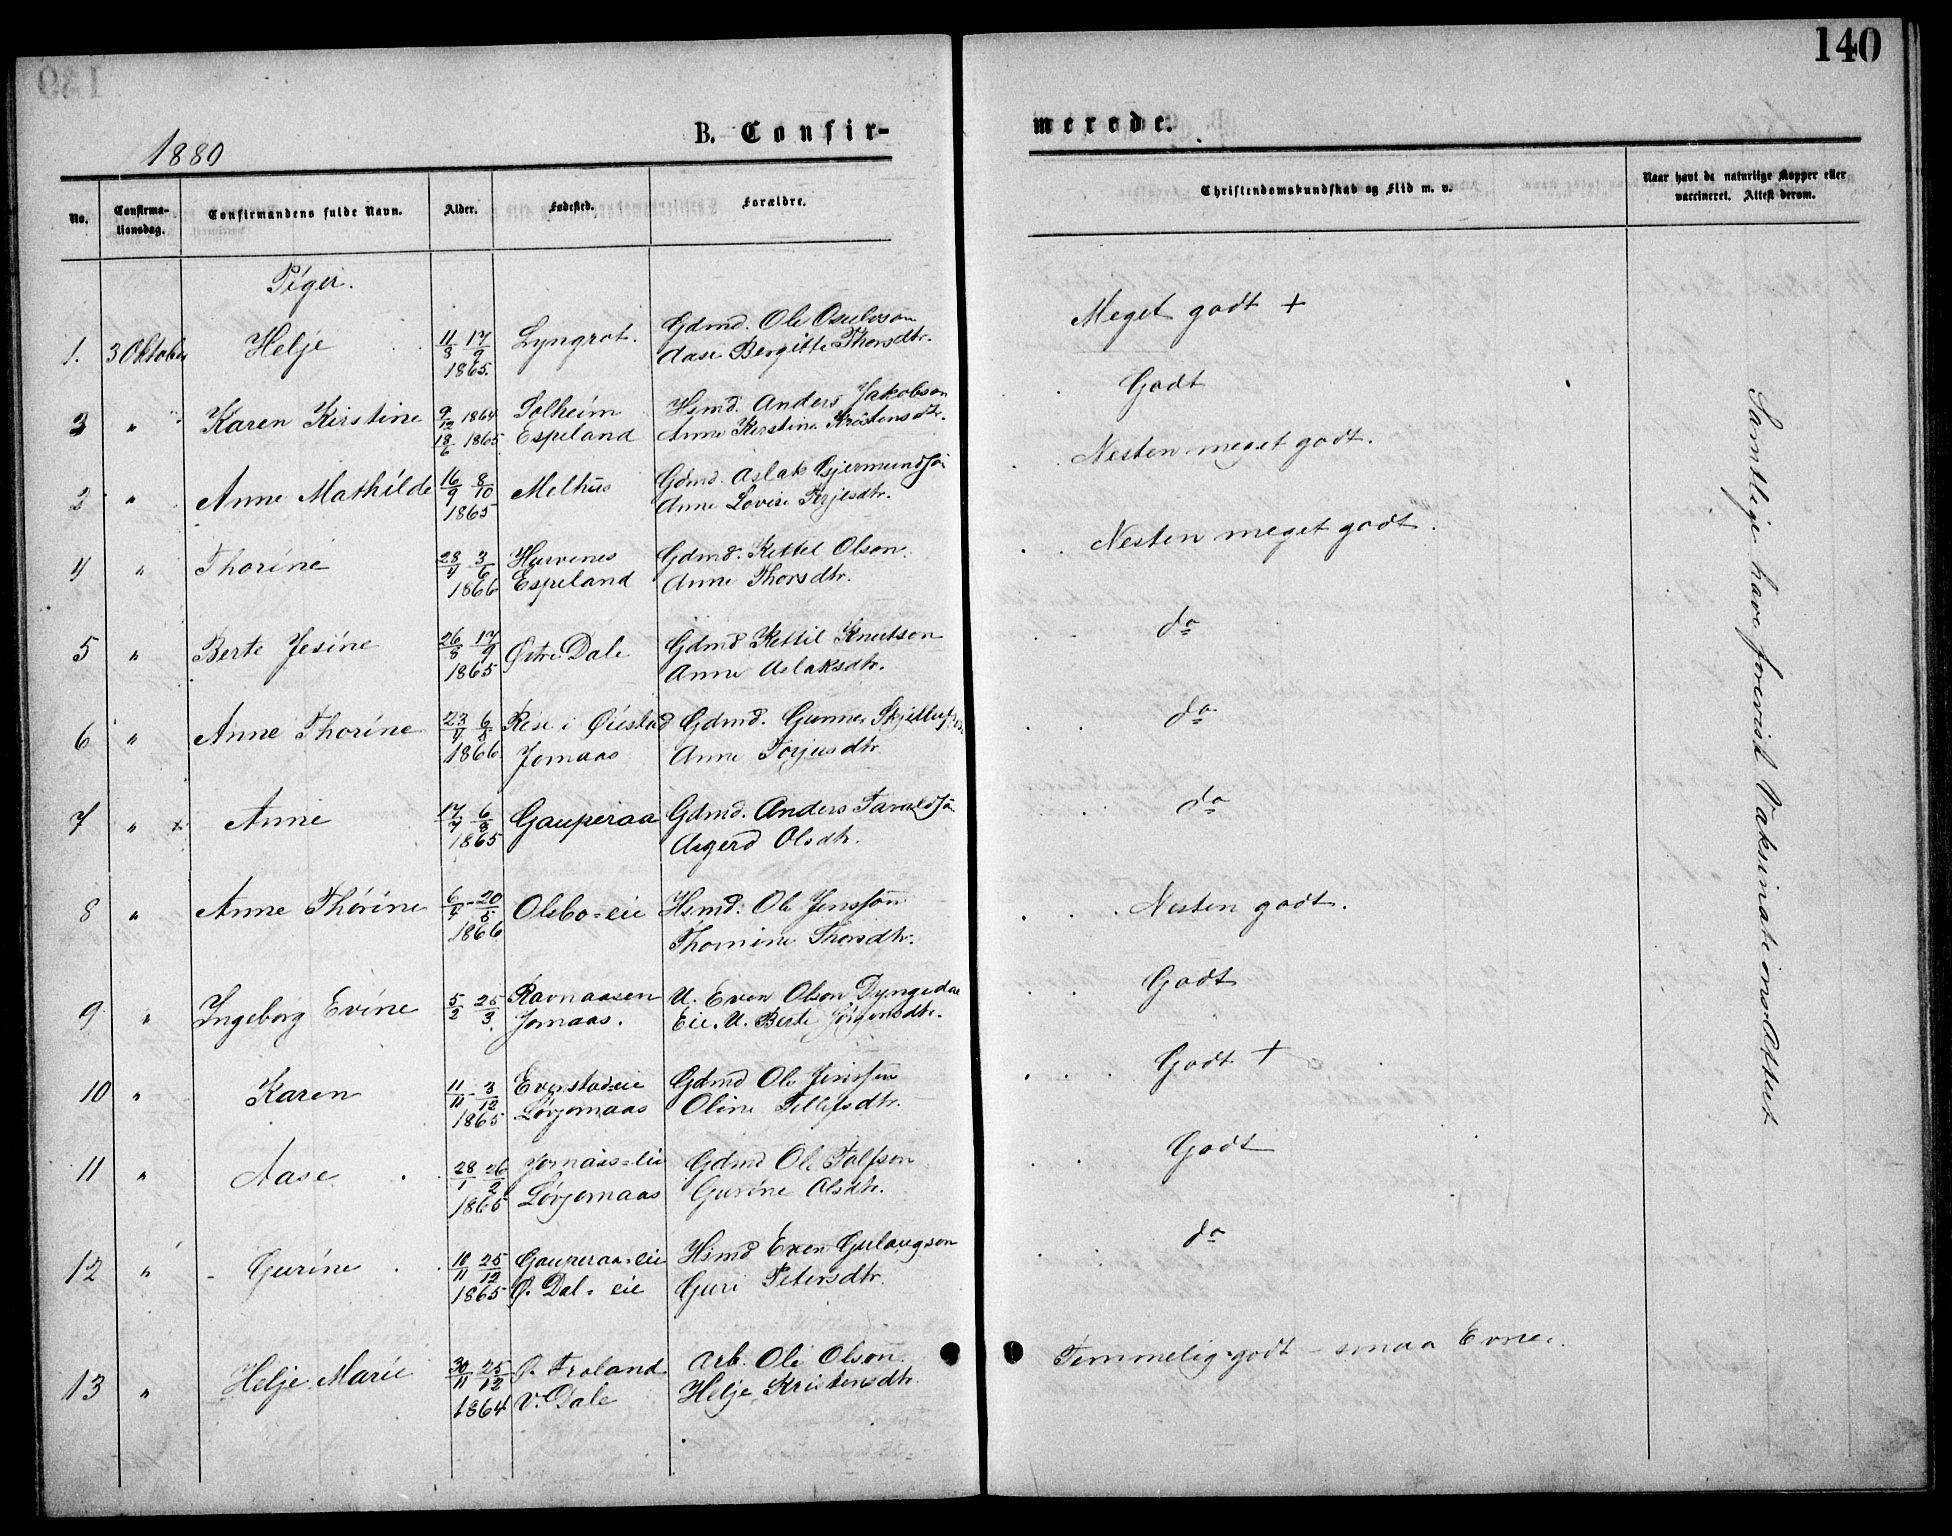 140
1880
B. Confir-
merede.
No.
Confirma-
tionsdag.
Confirmandens fulde Navn.
Alder.
Fødested.
Forældre.
Christendomskundskab og Flid m. v.
Naar havt de naturlige Kopper eller
vaccineret. Attest derom.
Piger.
1. 3 Oktober Helje 11/8 17/9 1865. Lyngrot. Gdmd. Ole Osulvson
Aase Bergitte Thorsdtr. Meget godt +
3 " Karen Kirstine 9/12 1864 18/6 1865 Solheim Espeland Hsmd. Anders Jakobson
Anne Kirstine Kristensdtr. Godt
2 " Anne Mathilde 16/9 8/10 1865 Melhus Gdmd. Aslak Gjermundsøn
Anne Lovise Terjesdtr. Nesten meget godt.
4 " Thorine 28/4 3/6 1866 Hurvenes Espeland Gdmd. Kettel Olson.
Anne Thorsdtr. Nesten meget godt.
5 " Berte Jesine 26/8 17/9 1865 Østre Dale Gdmd Kettil Knutson
Anne Aslaksdtr. do
6 " Anne Thorine 23/4 6/5 1866 i Øiestad Jomaas Gdmd. Gunner
Anne Torjusdtr do
7 " x Anne 17/7 6/8 1865 Gauperaa Gdmd. Anders Taraldsøn
Asgerd Olsdtr. do
8 " Anne Thorine 6/4 - 20/5 1866 Olsbo-eie Hsmd. Ole Jenssøn
Thomine Thorsdtr. Nesten godt.
9 " Ingeborg Evine 5/2 25/3 Ravnaasen Jomaas. U. Even Olson Dyngedal
Eie. U. Berte Jørgensdtr. Godt
10 " Karen 11/11 - 3/12 1865 Evenstadeie Lørjomaas Gdmd Ole Jenssøn
Oline Tellefsdtr. Godt +
11 " Aase 28/1 26/2 1865 Jomaas-eie Lørjomaas Gdmd Ole Tolfson
Gurine Olsdtr. Godt
12 " Gurine 10/11 25/12 1865 Gauperaa-eie Ø. Dal-eie Hsmd Even Gulaugson
Guri Petersdtr. do
13 " Helje Marie 30/11 25/12 1864 Ø. Froland V. Dale Arb. Ole Olson.
Helje Kristensdtr. Temmelig godt - smaa Evner.
Samtlige have forevist Vaksinations-Attest